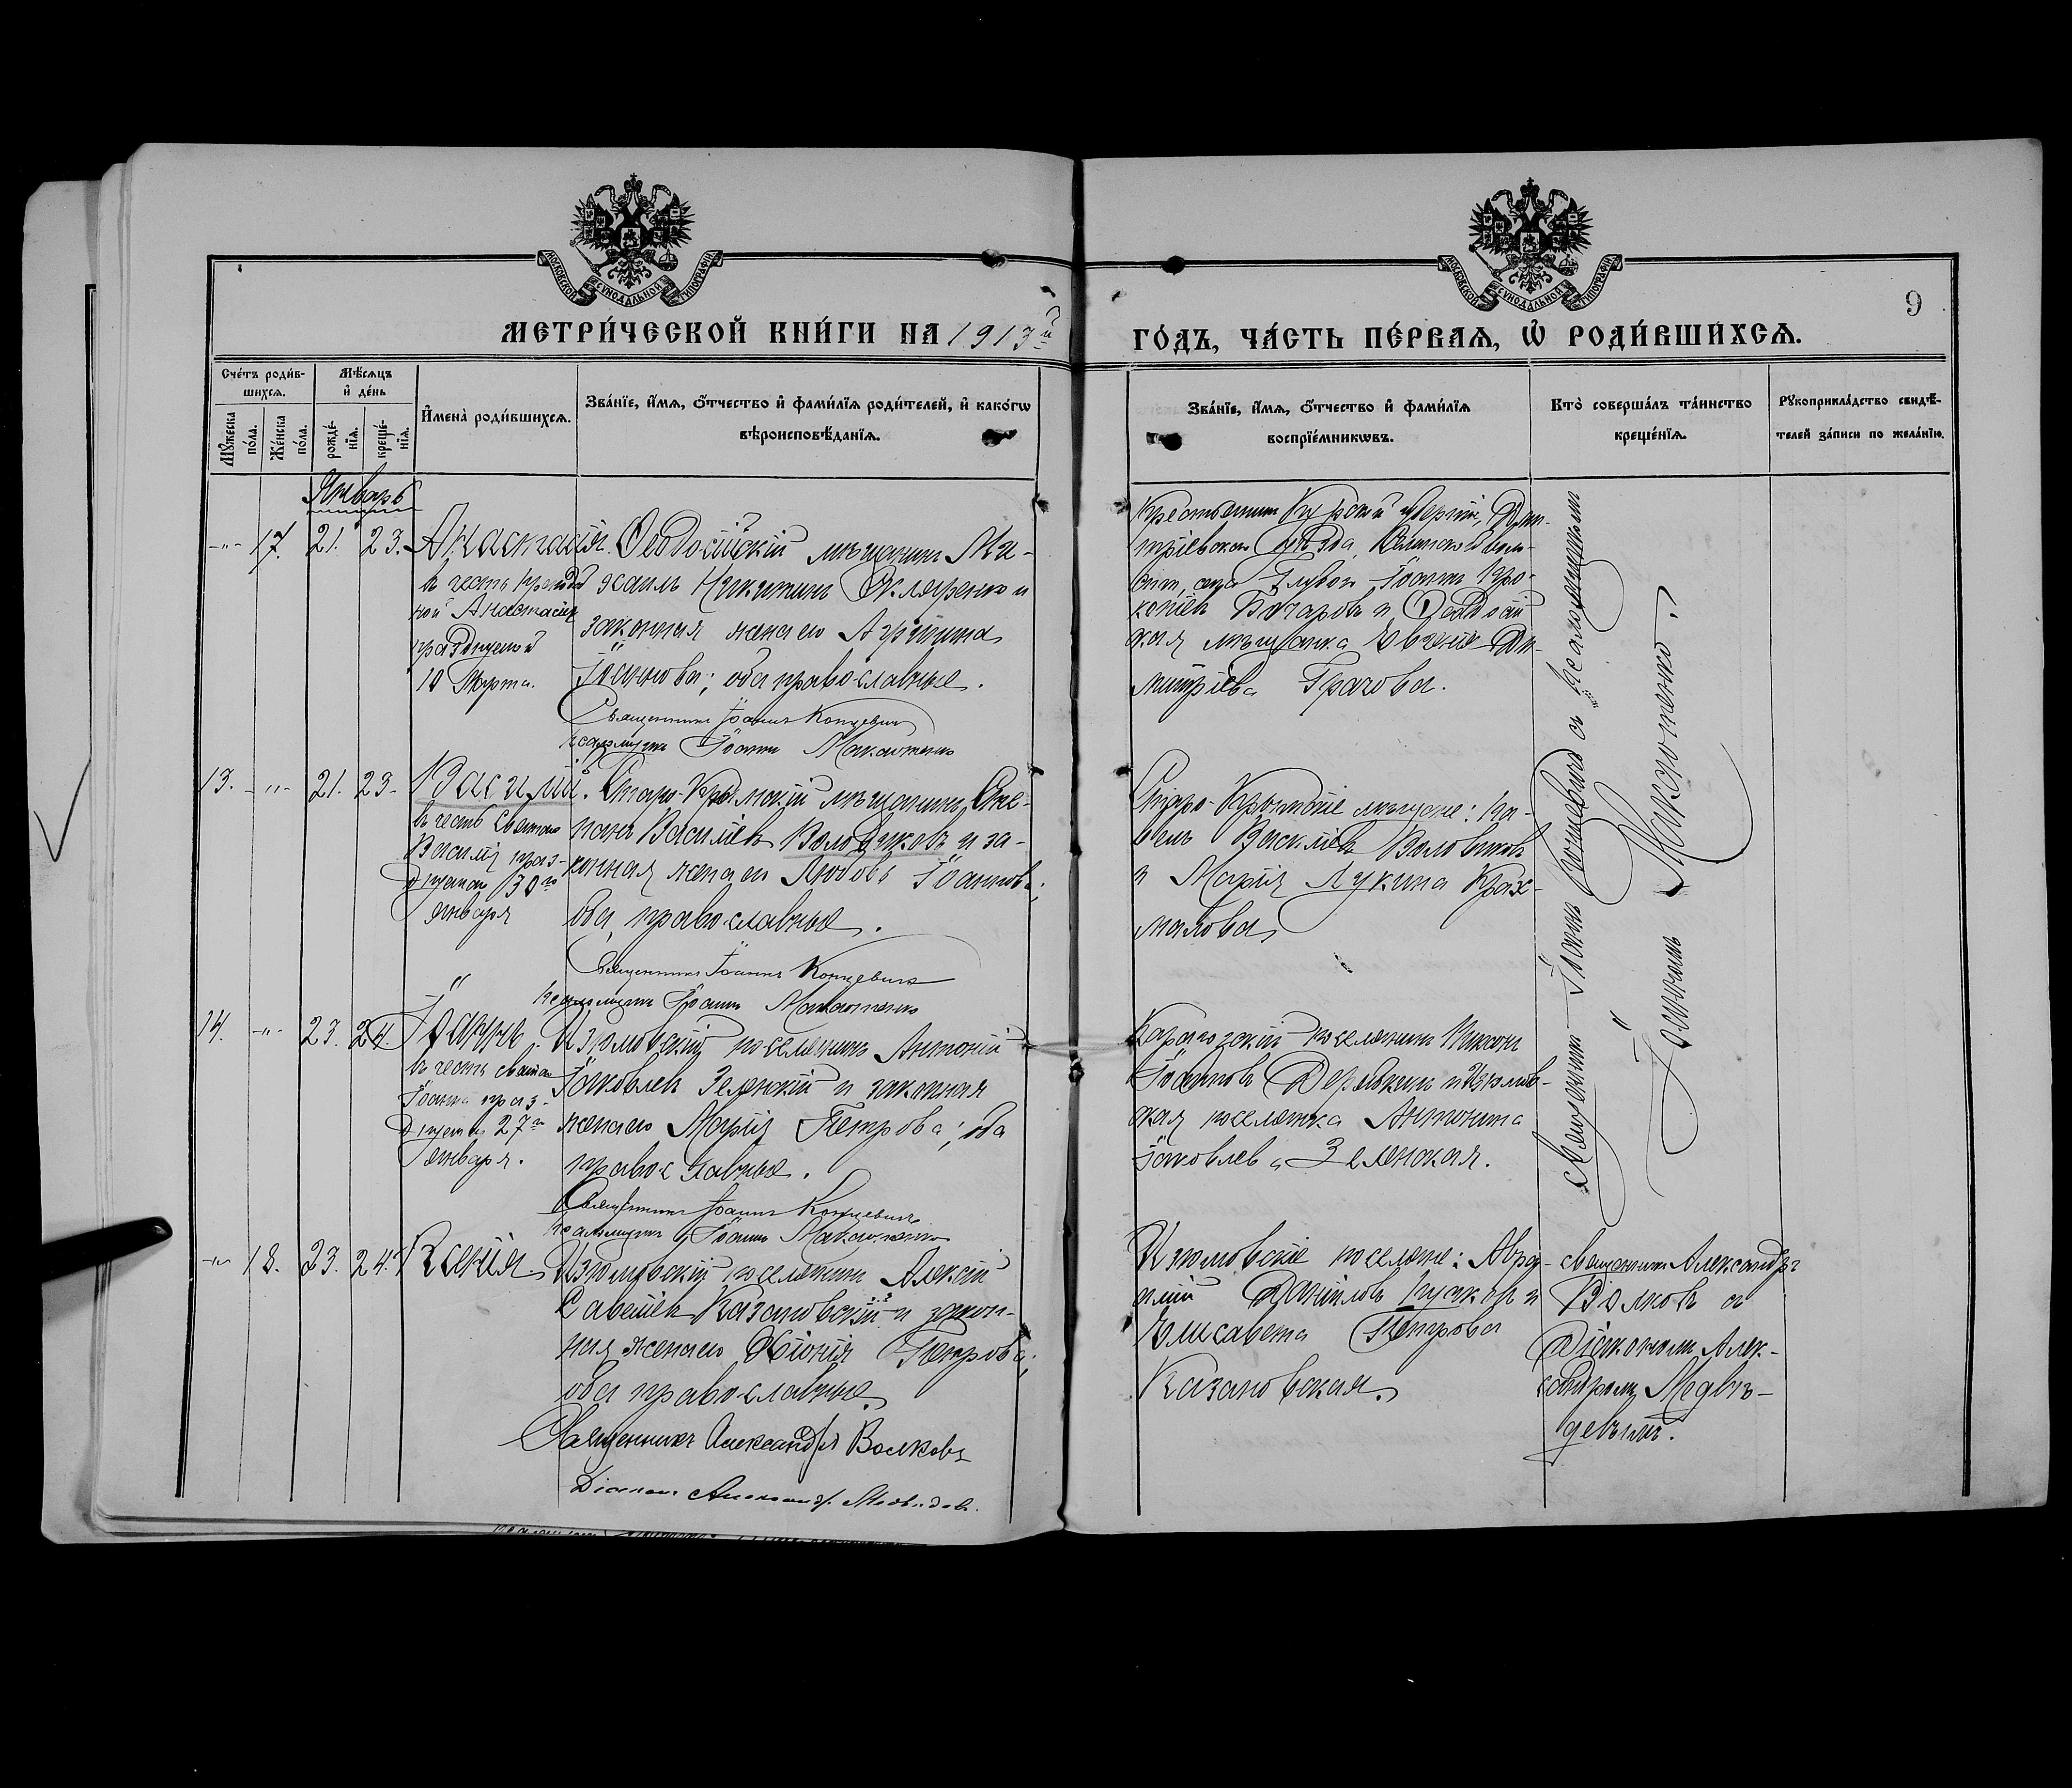 МОСКОВСКОЙ СѴНОДАЛЬНОЙ ТИПОГРАФІИ
МОСКОВСКОЙ СѴНОДАЛЬНОЙ ТИПОГРАФІИ
9
МЕТРИ́ЧЕСКОЙ КНИ́ГИ НА 1913й
ГО́ДЪ, ЧА́СТЬ ПЕ́РВАѦ, Ѡ҆ РОДИ́ВШИХСѦ.
Сче́тъ роди́в-
шихсѧ.
Мꙋ́жеска
по́ла.
Же́нска
по́ла.
Мѣ́сѧцъ
и҆ де́нь
рожде́-
нїѧ.
креще́-
нїѧ.
И҆мена̀ роди́вшихсѧ.
Зва́нїе, и҆́мѧ, ѻ҆́тчество и҆ фами́лїѧ роди́телей, и҆ како́гѡ
вѣроисповѣ́данїѧ.
Зва́нїе, и҆́мѧ, ѻ҆́тчество и҆ фами́лїѧ
воспрїе́мникѡвъ.
Кто̀ соверша́лъ та́инство
креще́нїѧ.
Рꙋкоприкла́дство свидѣ́-
телей за́писи по жела́нїю.
Январь
-"- 17. 21. 23. Анастасія.
въ честь
ной Анастасіи
празднуемой
10 Марта.
Ѳеодосійскій мѣщанинъ Ми-
хаилъ Никитинъ Скляренко и
законная жена его Агрипина
Іоаннова; оба православные.
Священникъ Іоаннъ Концевичъ
Псаломщикъ Іоаннъ
Крестьянинъ Курской губерніи, Дми-
тріевскаго уѣзда, воло-
сти, села Іоаннъ Про-
копіевъ Бочаровъ и Ѳеодосій-
ская мѣщанка Евгенія Ди-
митріева Грачова.
Священникъ Іоаннъ Концевичъ съ псаломщикомъ
Іоанномъ
13. -"- 21. 23. Василій.
въ честь Святаго
Василія праз-
днуемаго 30го
января
Старо-Крымскій мѣщанинъ Сте-
фанъ Васильевъ и за-
конная жена его Любовь Іоаннова;
оба православные.
Священникъ Іоаннъ Концевичъ
Псаломщикъ Іоаннъ
Старо-Крымскіе мѣщане: Па-
велъ Васильевъ
и Марія Лукина Крах-
малова
14. -"- 23. 24. Іоаннъ.
въ честь святаго
Іоанна праз-
днуемаго 27го
января.
Изюмовскій поселянинъ Антоній
Іаковлевъ Зеленскій и законная
жена его Марія Петрова; оба
православные.
Священникъ Іоаннъ Концевичъ
Псаломщикъ Іоаннъ
поселянинъ Никонъ
Іоанновъ и Изюмов-
ская поселянка Антонина
Іаковлева Зеленская.
-"- 18. 23. 24. Ксенія.
Изюмовскій поселянинъ Алексій
Казановскій и закон-
ная жена его Петрова;
оба православные.
Священникъ Александръ Волковъ
Діаконъ Александръ Медвѣдевъ.
Изюмовскіе поселяне: Авра-
амій Даніиловъ и
Елисавета Петрова
Казановская.
Священникъ Александръ
Волковъ съ
Діакономъ Алек-
сандромъ Медвѣ-
девымъ.